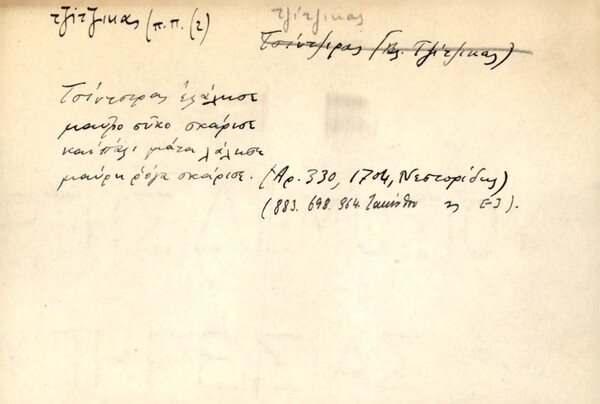 τζίτζικας (π.π. (2)
τζίτζικας
Τσίντζιρας (βλ. Τζίτζικας)
Τσίντσιρας ἐλάλησε
μαῦρο σῦκο σκάρισε
καὶ πάλι μάτα λάλησε
μαύρη ρόγα σκάρισε. (Ἀρ. 330, 1704, Νεστορίδης)
(883. 698. 964. Ζακύνθου